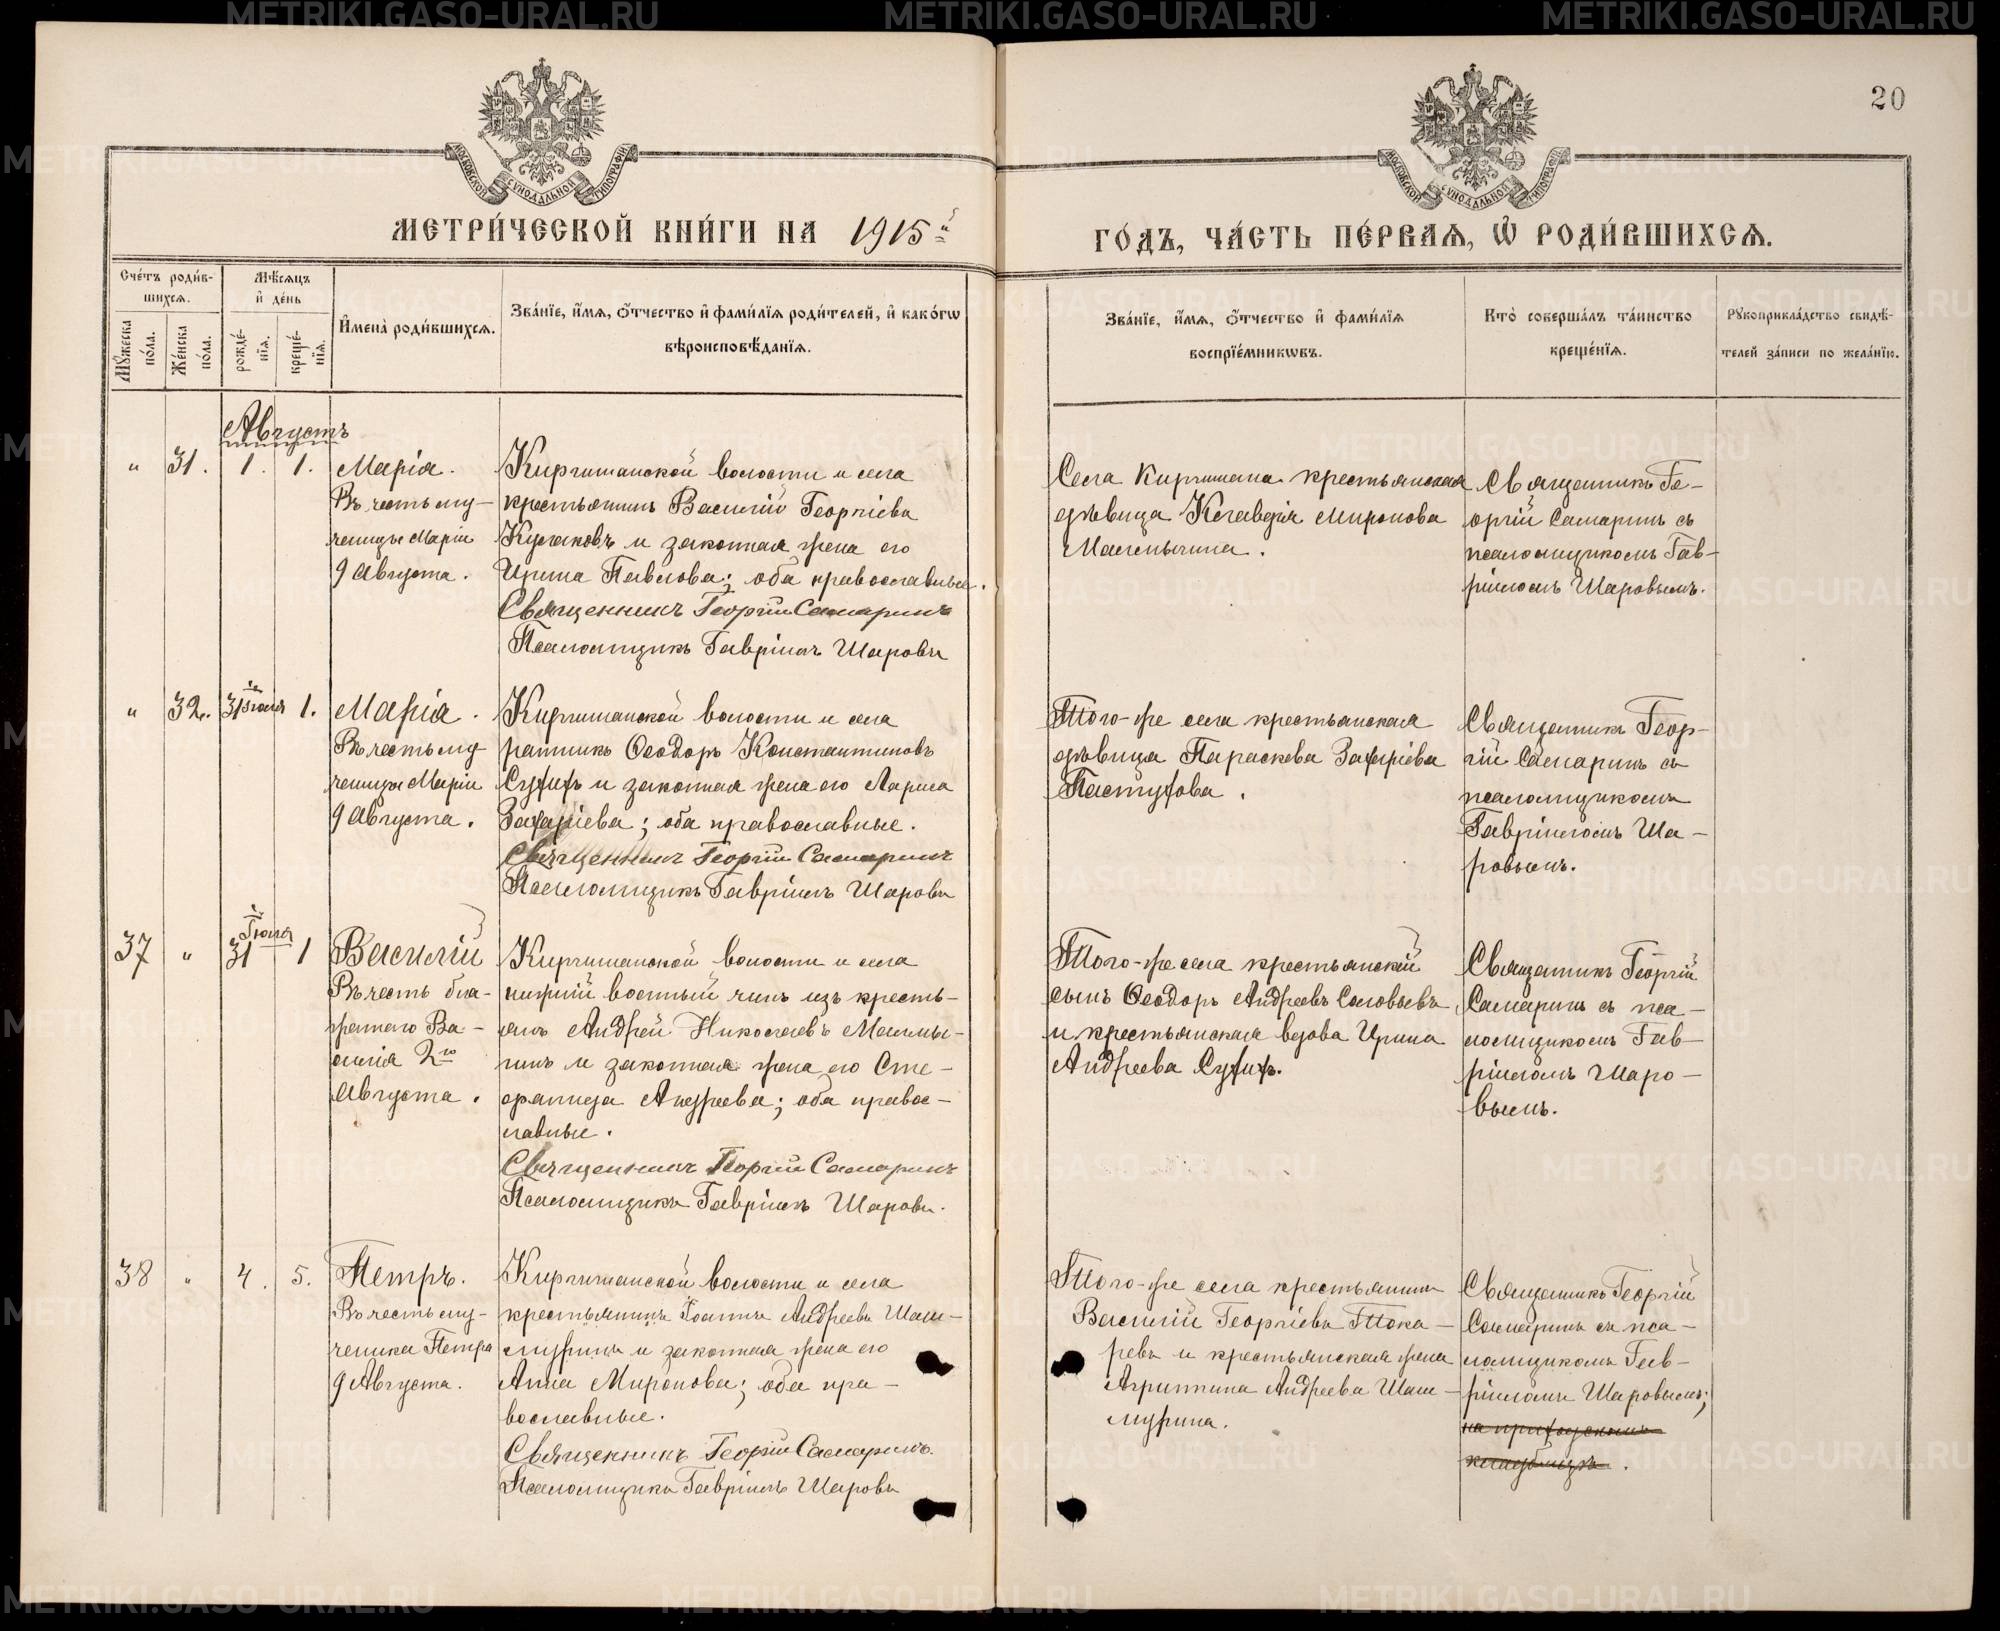 20
МОСКОВСКОЙ СѴНОДАЛЬНОЙ ТИПОГРАФІИ
МОСКОВСКОЙ СѴНОДАЛЬНОЙ ТИПОГРАФІИ
МЕТРИ́ЧЕСКОЙ КНИ́ГИ НА 1915й
ГО́ДЪ, ЧА́СТЬ ПЕ́РВАЯ, Ѡ РОДИ́ВШИХСЯ.
Сче́тъ роди́в-
шихся.
Мѣ́сяцъ
и де́нь
Мꙋ́жеска по́ла.
Же́нска по́ла.
рожде́-
нїя.
креще́-
нїя.
Имена̀ роди́вшихся.
Зва́нїе, и́мя, ѻ́тчество и фами́лїя роди́телей, и како́гѡ
вѣроисповѣ́данїя.
Зва́нїе, и́мя, ѻ́тчество и фами́лїя
воспрїе́мникѡвъ.
Кто̀ соверша́лъ та́инство
креще́нїя.
Рꙋкоприкла́дство свидѣ́-
телей за́писи по жела́нїю.
Августъ
" 31. 1. 1. Марія.
Въ честь му-
ченицы Маріи
9 Августа.
Киргишанской волости и села
крестьянинъ Василій Георгіевъ
Кулаковъ и законная жена его
Ирина Павлова; оба православные.
Священникъ Георгій Самаринъ
Псаломщикъ Гавріилъ Шаровъ
Села Киргишана крестьянская
дѣвица Клавдія Миронова
Малмыгина.
Священникъ Ге-
оргій Самаринъ съ
псаломщикомъ Гав-
ріиломъ Шаровымъ.
" 32. 31 іюля 1. Марія.
Въ честь му-
ченицы Маріи
9 Августа.
Киргишанской волости и села
ратникъ Ѳеодоръ Константиновъ
Сухихъ и законная жена его Лариса
Захаріева; оба православные.
Священникъ Георгій Самаринъ
Псаломщикъ Гавріилъ Шаровъ
Того-же села крестьянская
дѣвица Параскева Захаріева
Пастухова.
Священникъ Геор-
гій Самаринъ съ
псаломщикомъ
Гавріиломъ Ша-
ровымъ.
37 " Іюля 31 1 Василій
Въ честь бла-
женнаго Ва-
силія 2го
Августа.
Киргишанской волости и села
нижній военный чинъ изъ кресть-
янъ Андрей Николаевъ Малмы-
гинъ и законная жена его Сте-
фанида Андреева; оба правос-
лавные.
Священникъ Георгій Самаринъ
Псаломщикъ Гавріилъ Шаровъ.
Того-же села крестьянскій
сынъ Ѳеодоръ Андреевъ Соловьевъ
и крестьянская вдова Ирина
Андреева Сухихъ.
Священникъ Георгій
Самаринъ съ пса-
ломщикомъ Гав-
ріиломъ Шаро-
вымъ.
38 " 4. 5. Петръ.
Въ честь му-
ченика Петра
9 Августа.
Киргишанской волости и села
крестьянинъ Іоаннъ Андреевъ Шаш-
муринъ и законная жена его
Анна Миронова; оба пра-
вославные.
Священникъ Георгій Самаринъ.
Псаломщикъ Гавріилъ Шаровъ
Того-же села крестьянинъ
Василій Георгіевъ Тока-
ревъ и крестьянская жена
Агриппина Андреева Шаш-
мурина.
Священникъ Георгій
Самаринъ съ пса-
ломщикомъ Гав-
ріиломъ Шаровымъ;
на приходскомъ
кладбищѣ.